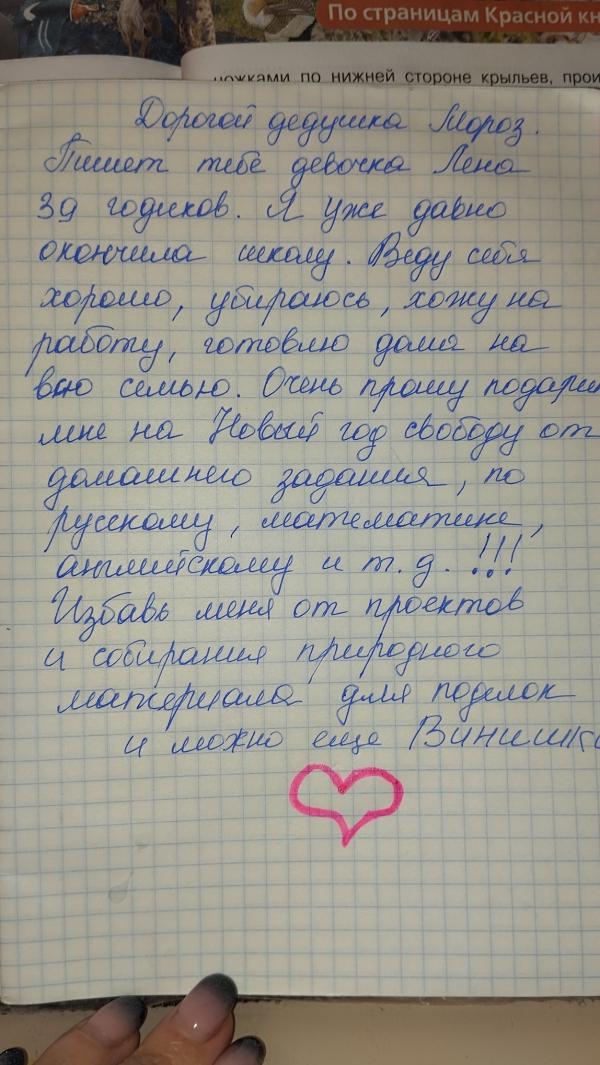 По страницам Красной кн
ножками по нижней стороне крыльев, прои
Дорогой дедушка Мороз.
Пишет тебе девочка Лена
39 годиков. Я уже давно
окончила школу. Веду себя
хорошо, убираюсь, хожу на
работу, готовлю дома на
всю семью. Очень прошу подари
мне на Новый год свободу от
домашнего задания, по
русскому, математике,
английскому и т.д. !!!
Избавь меня от проектов
и собирания природного
материала для поделок
и можно еще Винишко